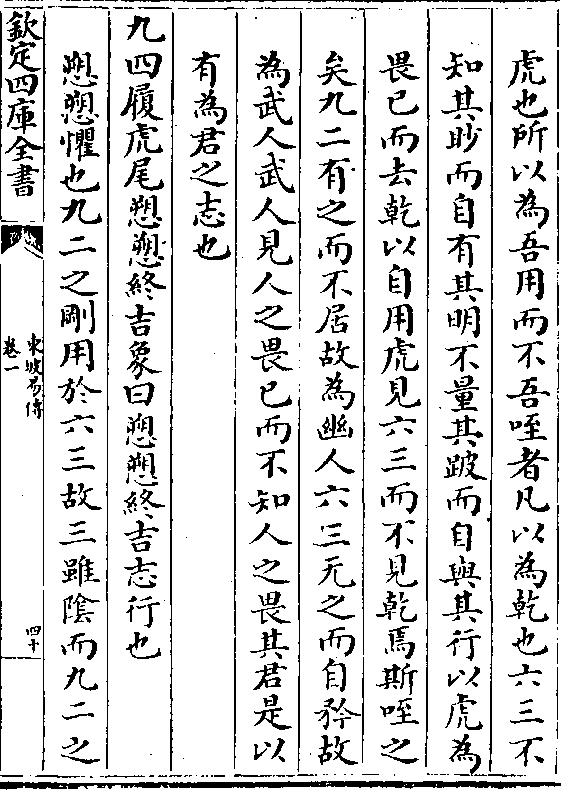 虎也所以為吾用而不吾咥者凡以為乾也六三不
知其眇而自有其明不量其跛而自與其行以虎為
畏已而去乾以自用虎見六三而不見乾焉斯咥之
矣九二有之而不居故為幽人六三无之而自矜故
為武人武人見人之畏已而不知人之畏其君是以
有為君之志也
九四履虎尾愬愬終吉象曰愬愬終吉志行也
愬愬懼也九二之剛用於六三故三雖陰而九二之
欽定四庫全書
東坡易傳
卷一
四十